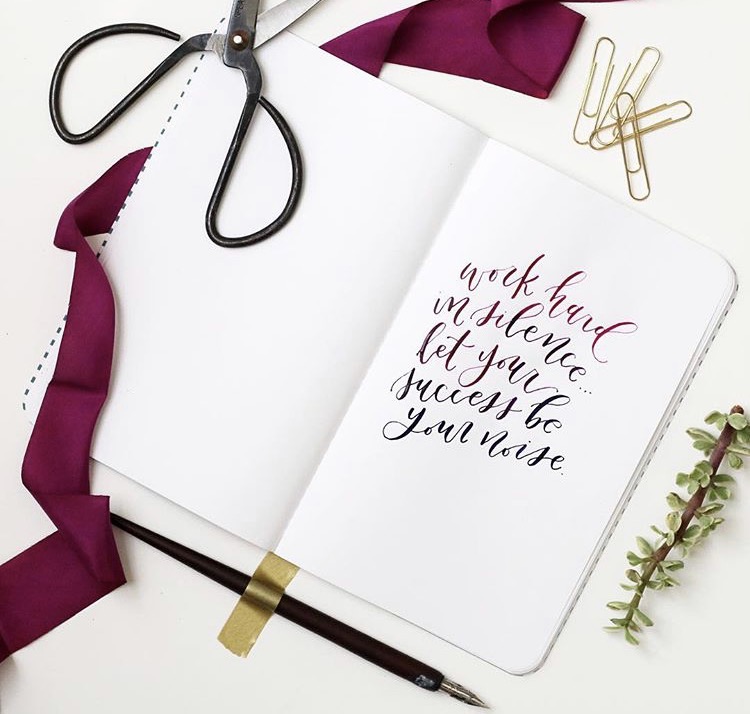 work hard
in silence...
let your
success be
your noise.